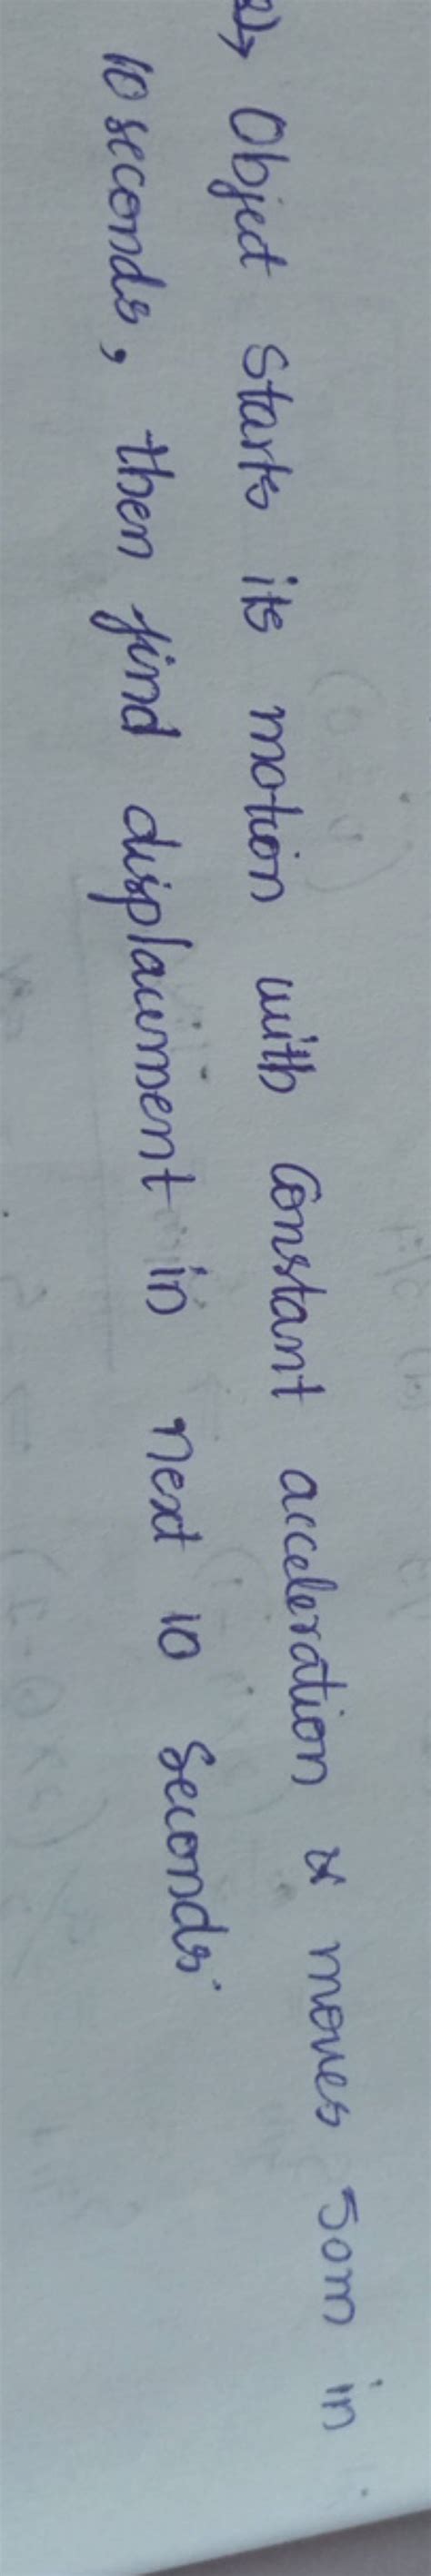 2)→ Object starts its motion with constant acceleration & moves 50m in
10 seconds, then find displacement in next 10 seconds.